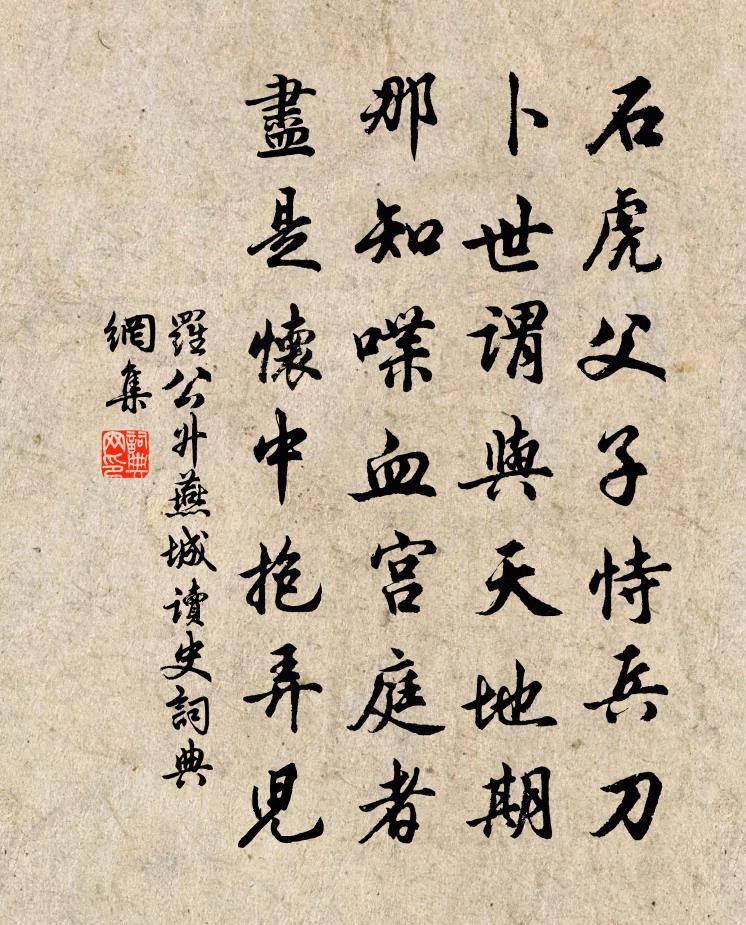 石虎父子恃兵刀
卜世謂與天地期
那知喋血宮庭者
盡是懷中抱弄児
羅公升燕城讀史詞典
網集
詞典
网印